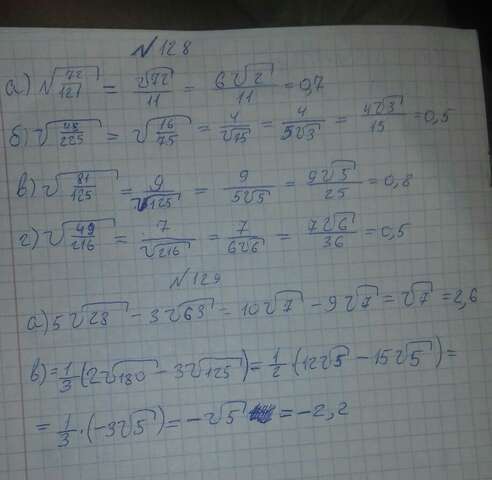 №128
а) √(72/121) = √72/11 = 6√2/11 = 0,7
б) √(48/225) = √(16/75) = 4/√75 = 4/5√3 = 4√3/15 = 0,5
в) √(81/125) = 9/√125 = 9/5√5 = 9√5/25 = 0,8
г) √(49/216) = 7/√216 = 7/6√6 = 7√6/36 = 0,5
№129
а) 5√28 - 3√63 = 10√7 - 9√7 = √7 = 2,6
в) = 1/3 (2√180 - 3√125) = 1/2 (12√5 - 15√5) =
= 1/3 · (-3√5) = -√5 = -2,2